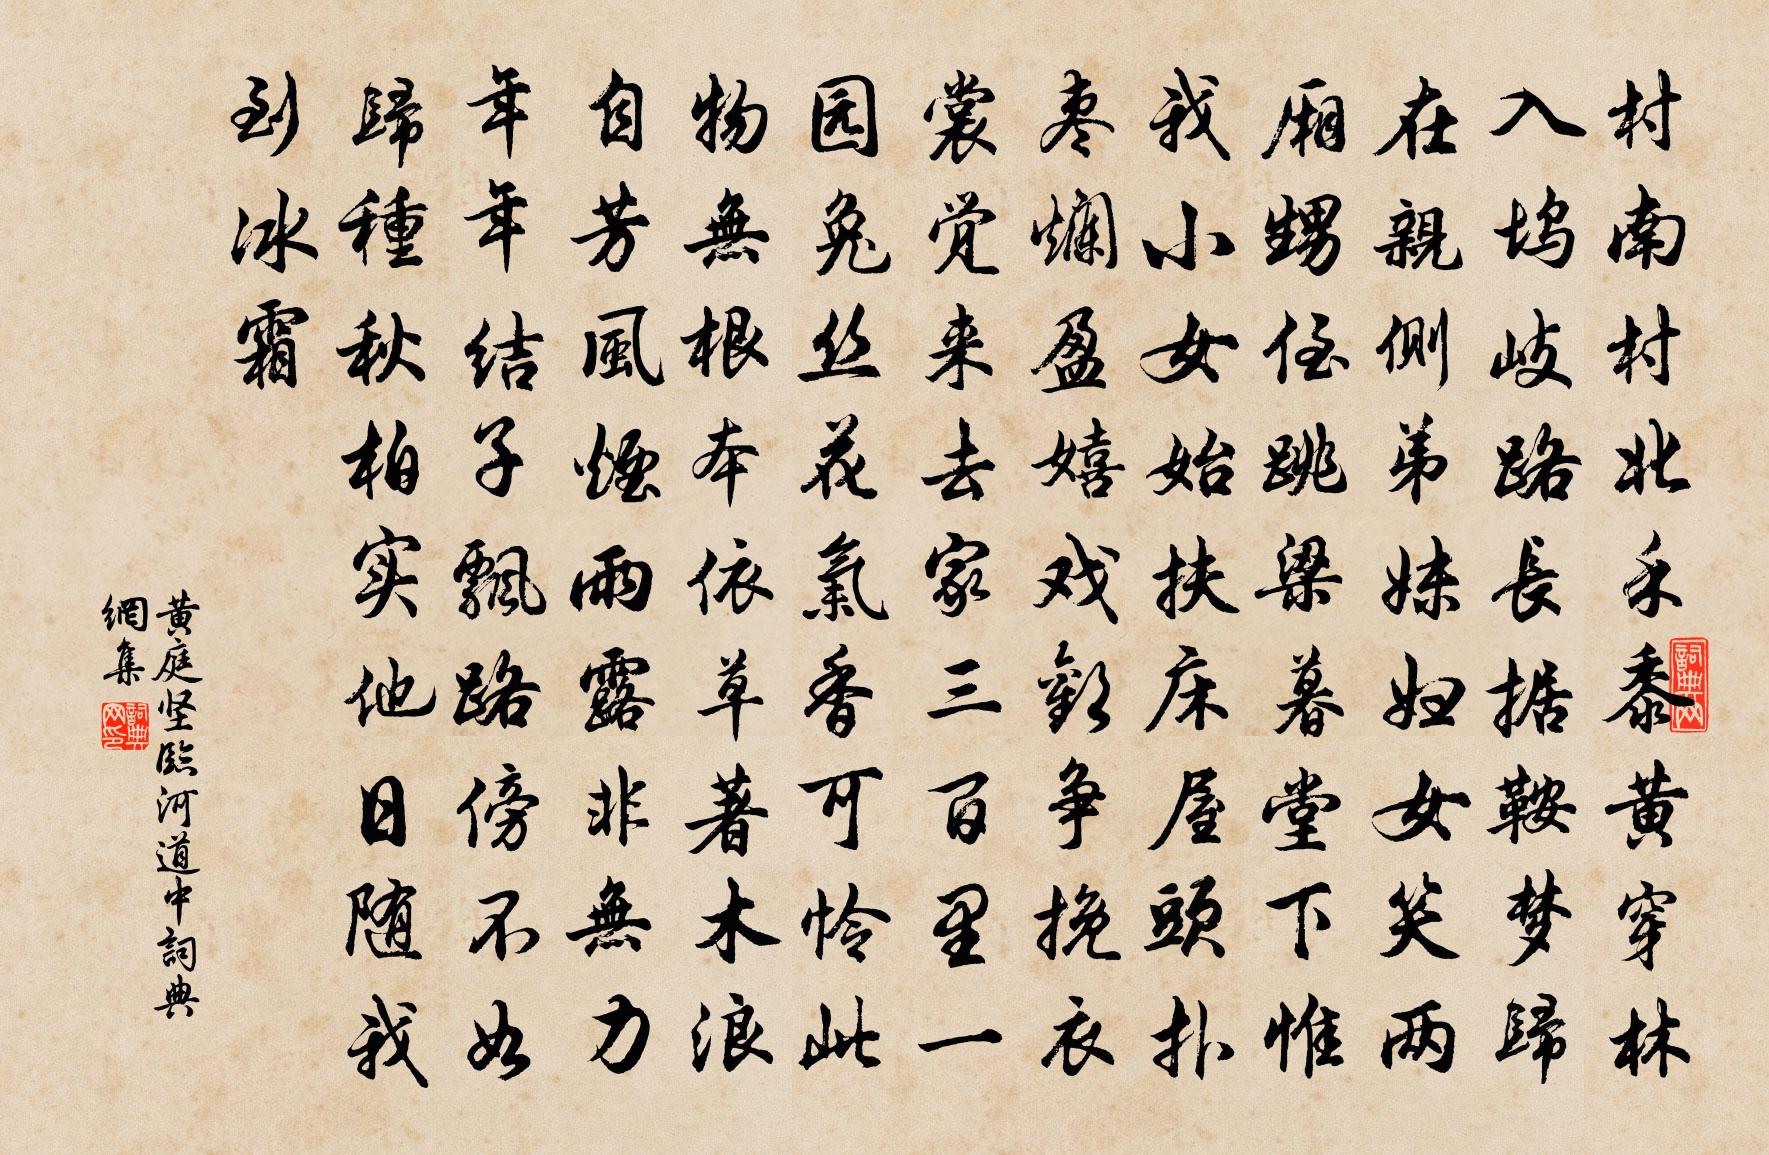 村南村北禾黍黄穿林
入坞岐路長据鞍梦歸
在親側弟妹妇女笑两
厢甥侄跳梁暮堂下惟
我小女始扶床屋頭扑
枣爛盈嬉戏歡争挽衣
裳觉来去家三百里一
园兔丝花氣香可怜此
物無根本依草著木浪
自芳風煙雨露非無力
年年結子飄路傍不如
歸種秋柏实他日随我
到冰霜
黄庭坚臨河道中詞典
網集
詞典网
詞典网印